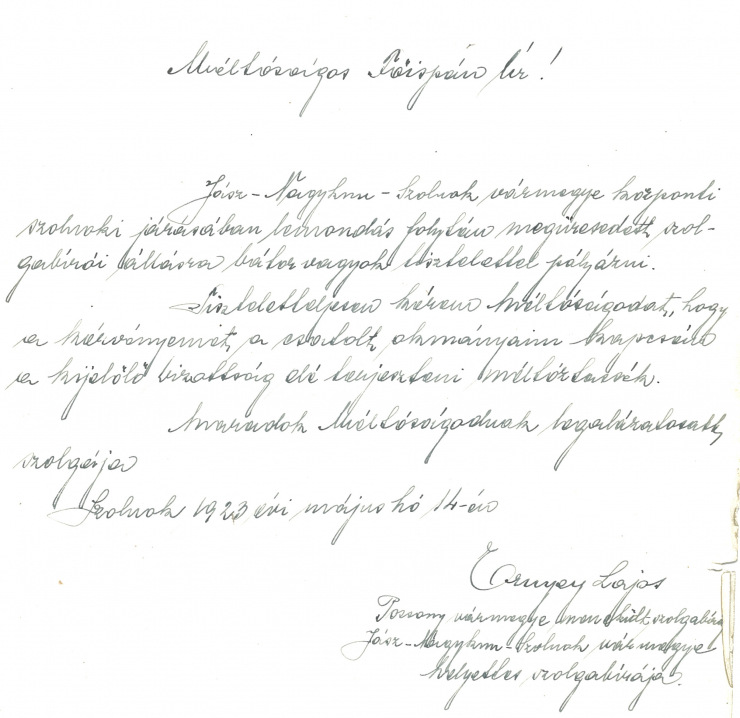 Méltóságos Főispán Úr!
Jász-Nagykun-Szolnok vármegye központi
szolnoki járásában lemondás folytán megüresedett szol-
gabírói állásra bátor vagyok tisztelettel pályázni.
Tiszteletteljesen kérem Méltóságodat, hogy
a kérvényemet, a csatolt okmányaim kapcsán
a kijelölő bizottság elé terjeszteni méltóztassék.
Maradok Méltóságodnak legalázatosabb
szolgája
Szolnok 1923 évi május hó 14-én
Lajos
Pozsony vármegye menekült szolgabíra
Jász-Nagykun-Szolnok vármegye
helyettes szolgabírája.